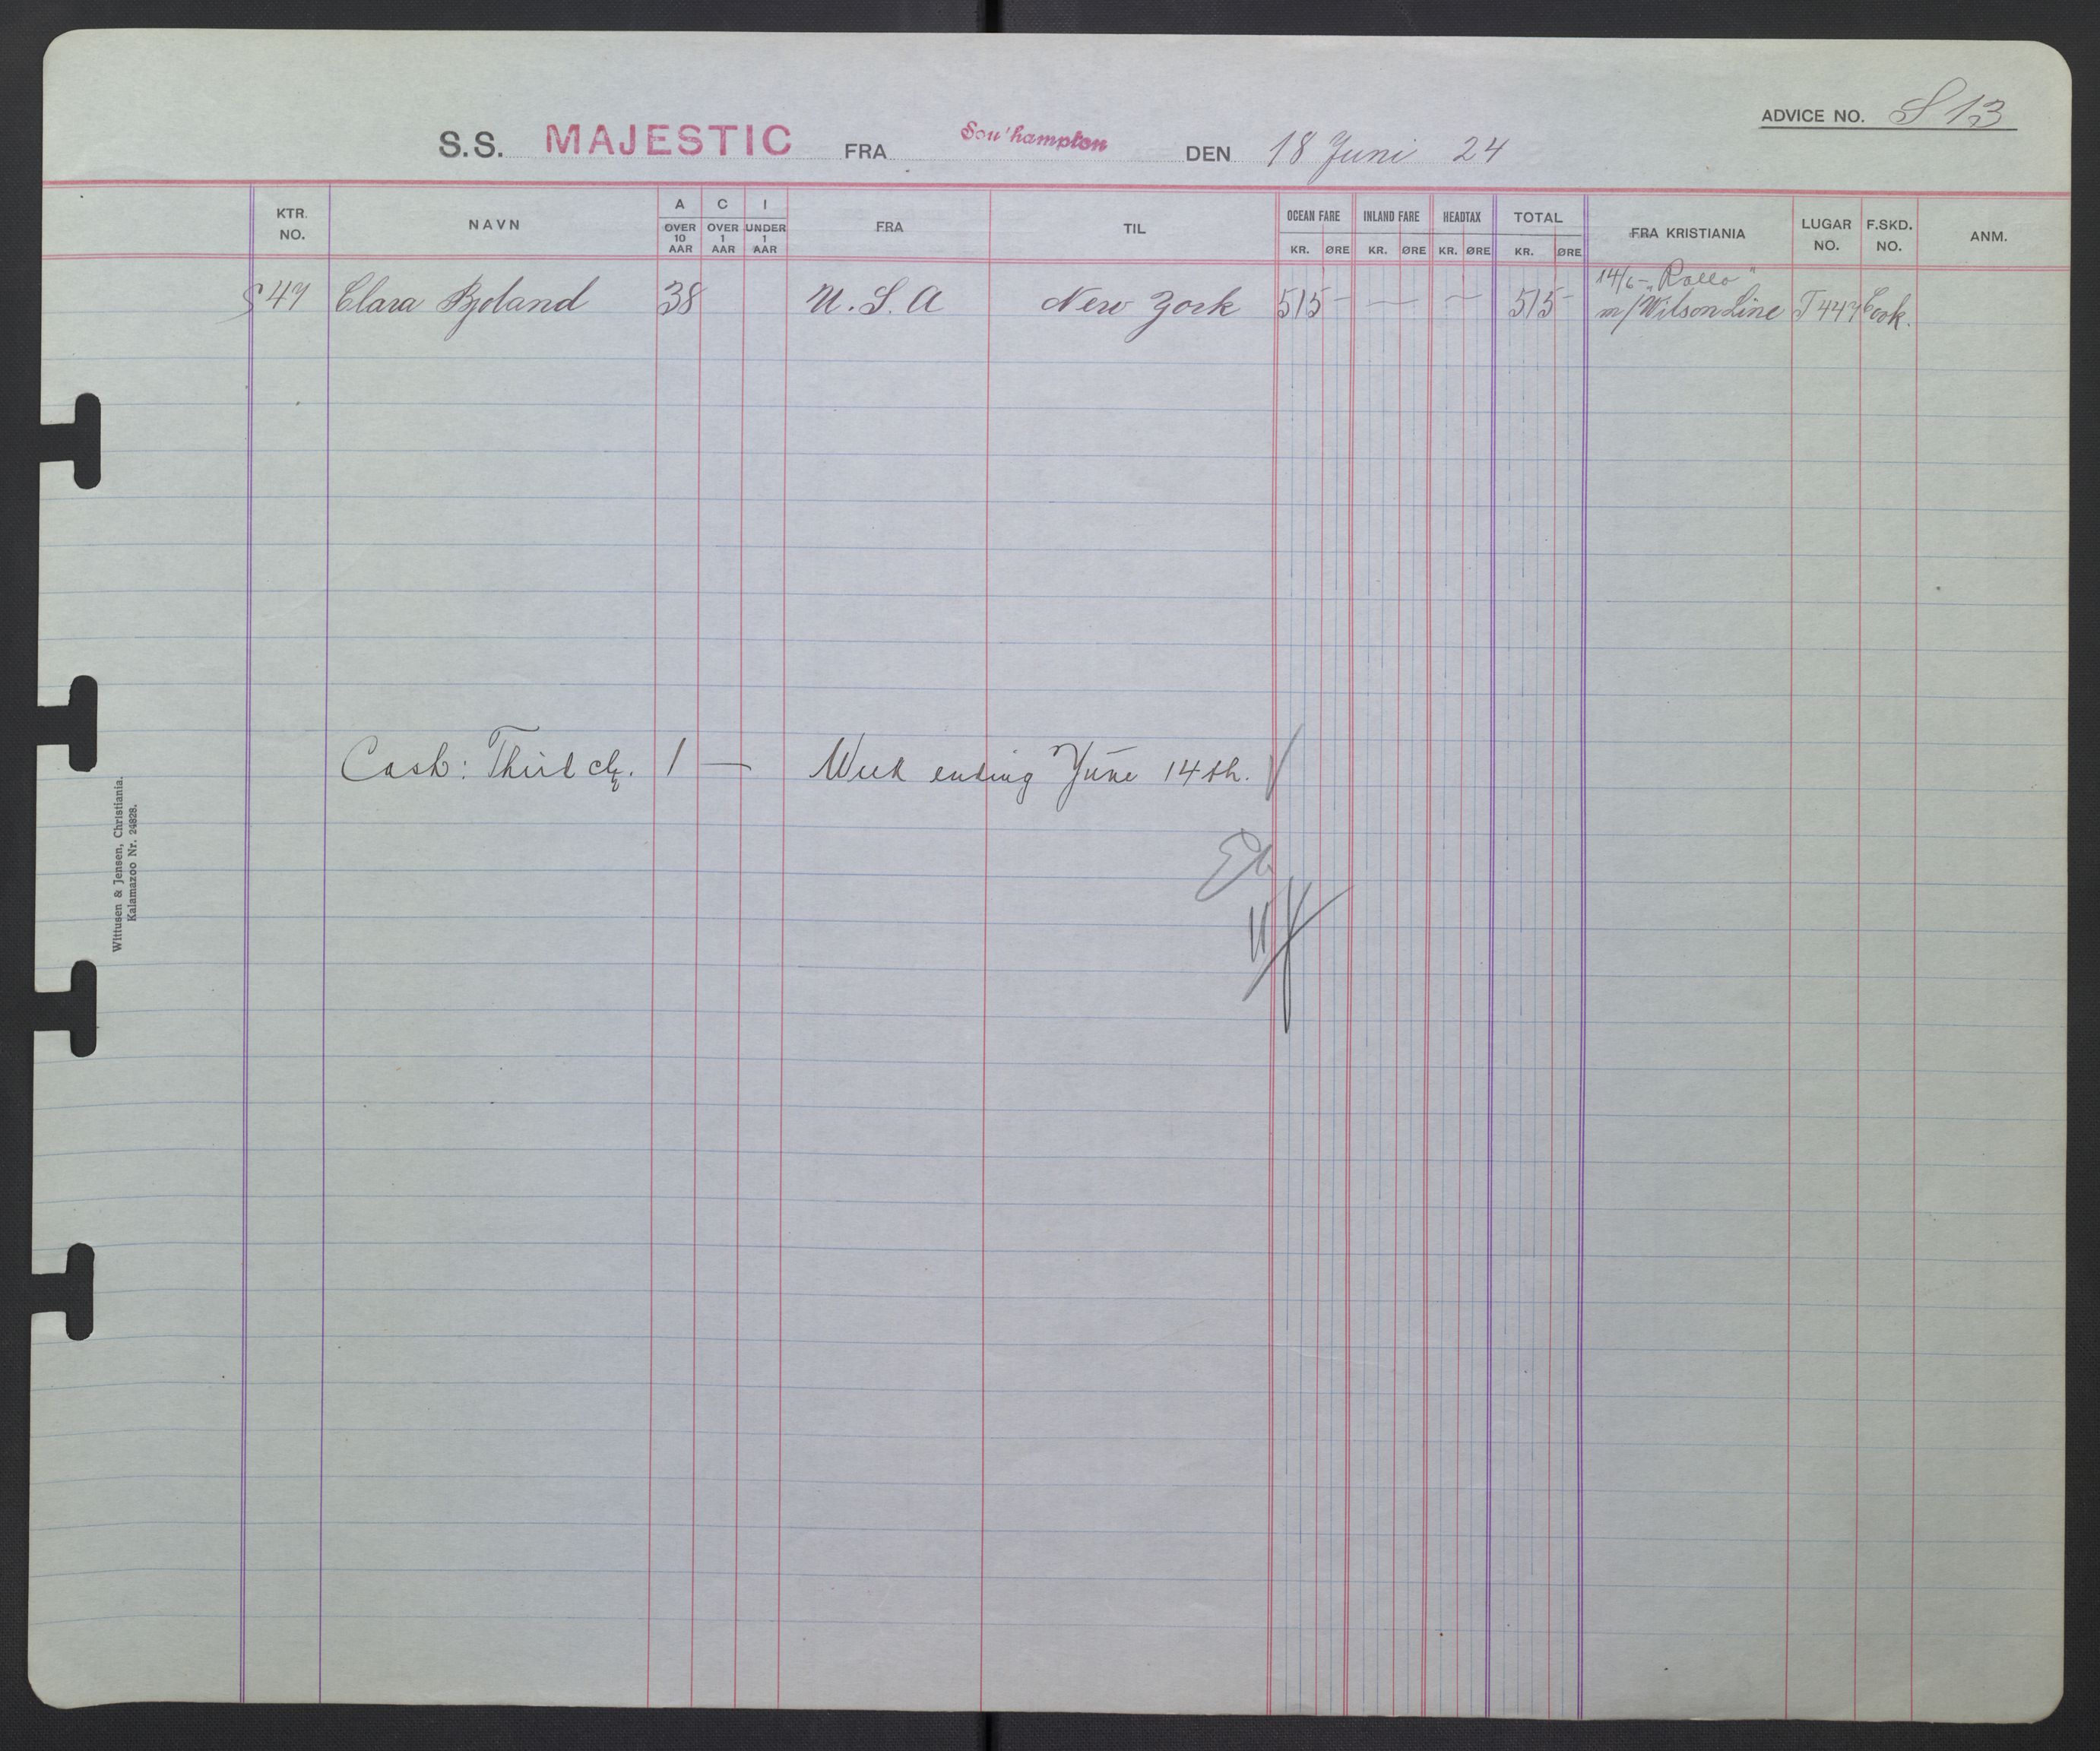 ADVICE NO. S 13
S.S. MAJESTIC FRA Sou'hampton DEN 18 Juni 24
KTR. NO. NAVN A OVER 10 AAR C OVER 1 AAR I UNDER 1 AAR FRA TIL OCEAN FARE KR. ØRE INLAND FARE KR. ØRE HEADTAX KR. ØRE TOTAL KR. ØRE FRA KRISTIANIA LUGAR NO. F.SKD. NO. ANM.
14/6 - "Rollo"
S 47 Clara Bjoland 38 U.S.A New York 515 - — — 515 - m/Wilson Line T 447 Cook.
Cash: Third cl. 1 — Week ending June 14th.
Wittusen & Jensen, Christiania.
Kalamazoo Nr. 24828.